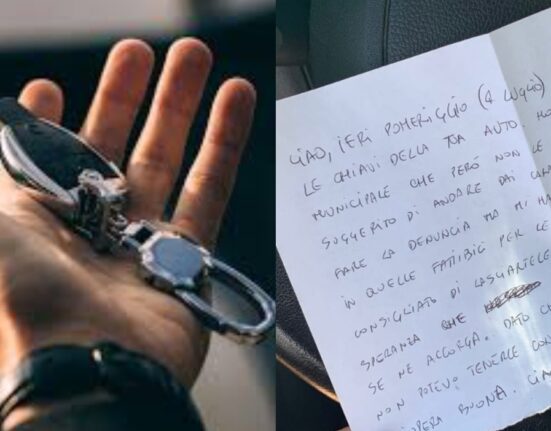 CIAO, IERI POMERIGGIO (4 LUGLIO)
LE CHIAVI DELLA TUA AUTO. HO
MUNICIPALE CHE PERÒ NON LE
SUGGERITO DI ANDARE DAI
FARE LA DENUNCIA MA MI HA
IN QUELLE PER LE
CONSIGLIATO DI
SPERANZA CHE
SE NE ACCORGA. DATO
NON POTEVO TENERLE CON
BUONA. CIAO